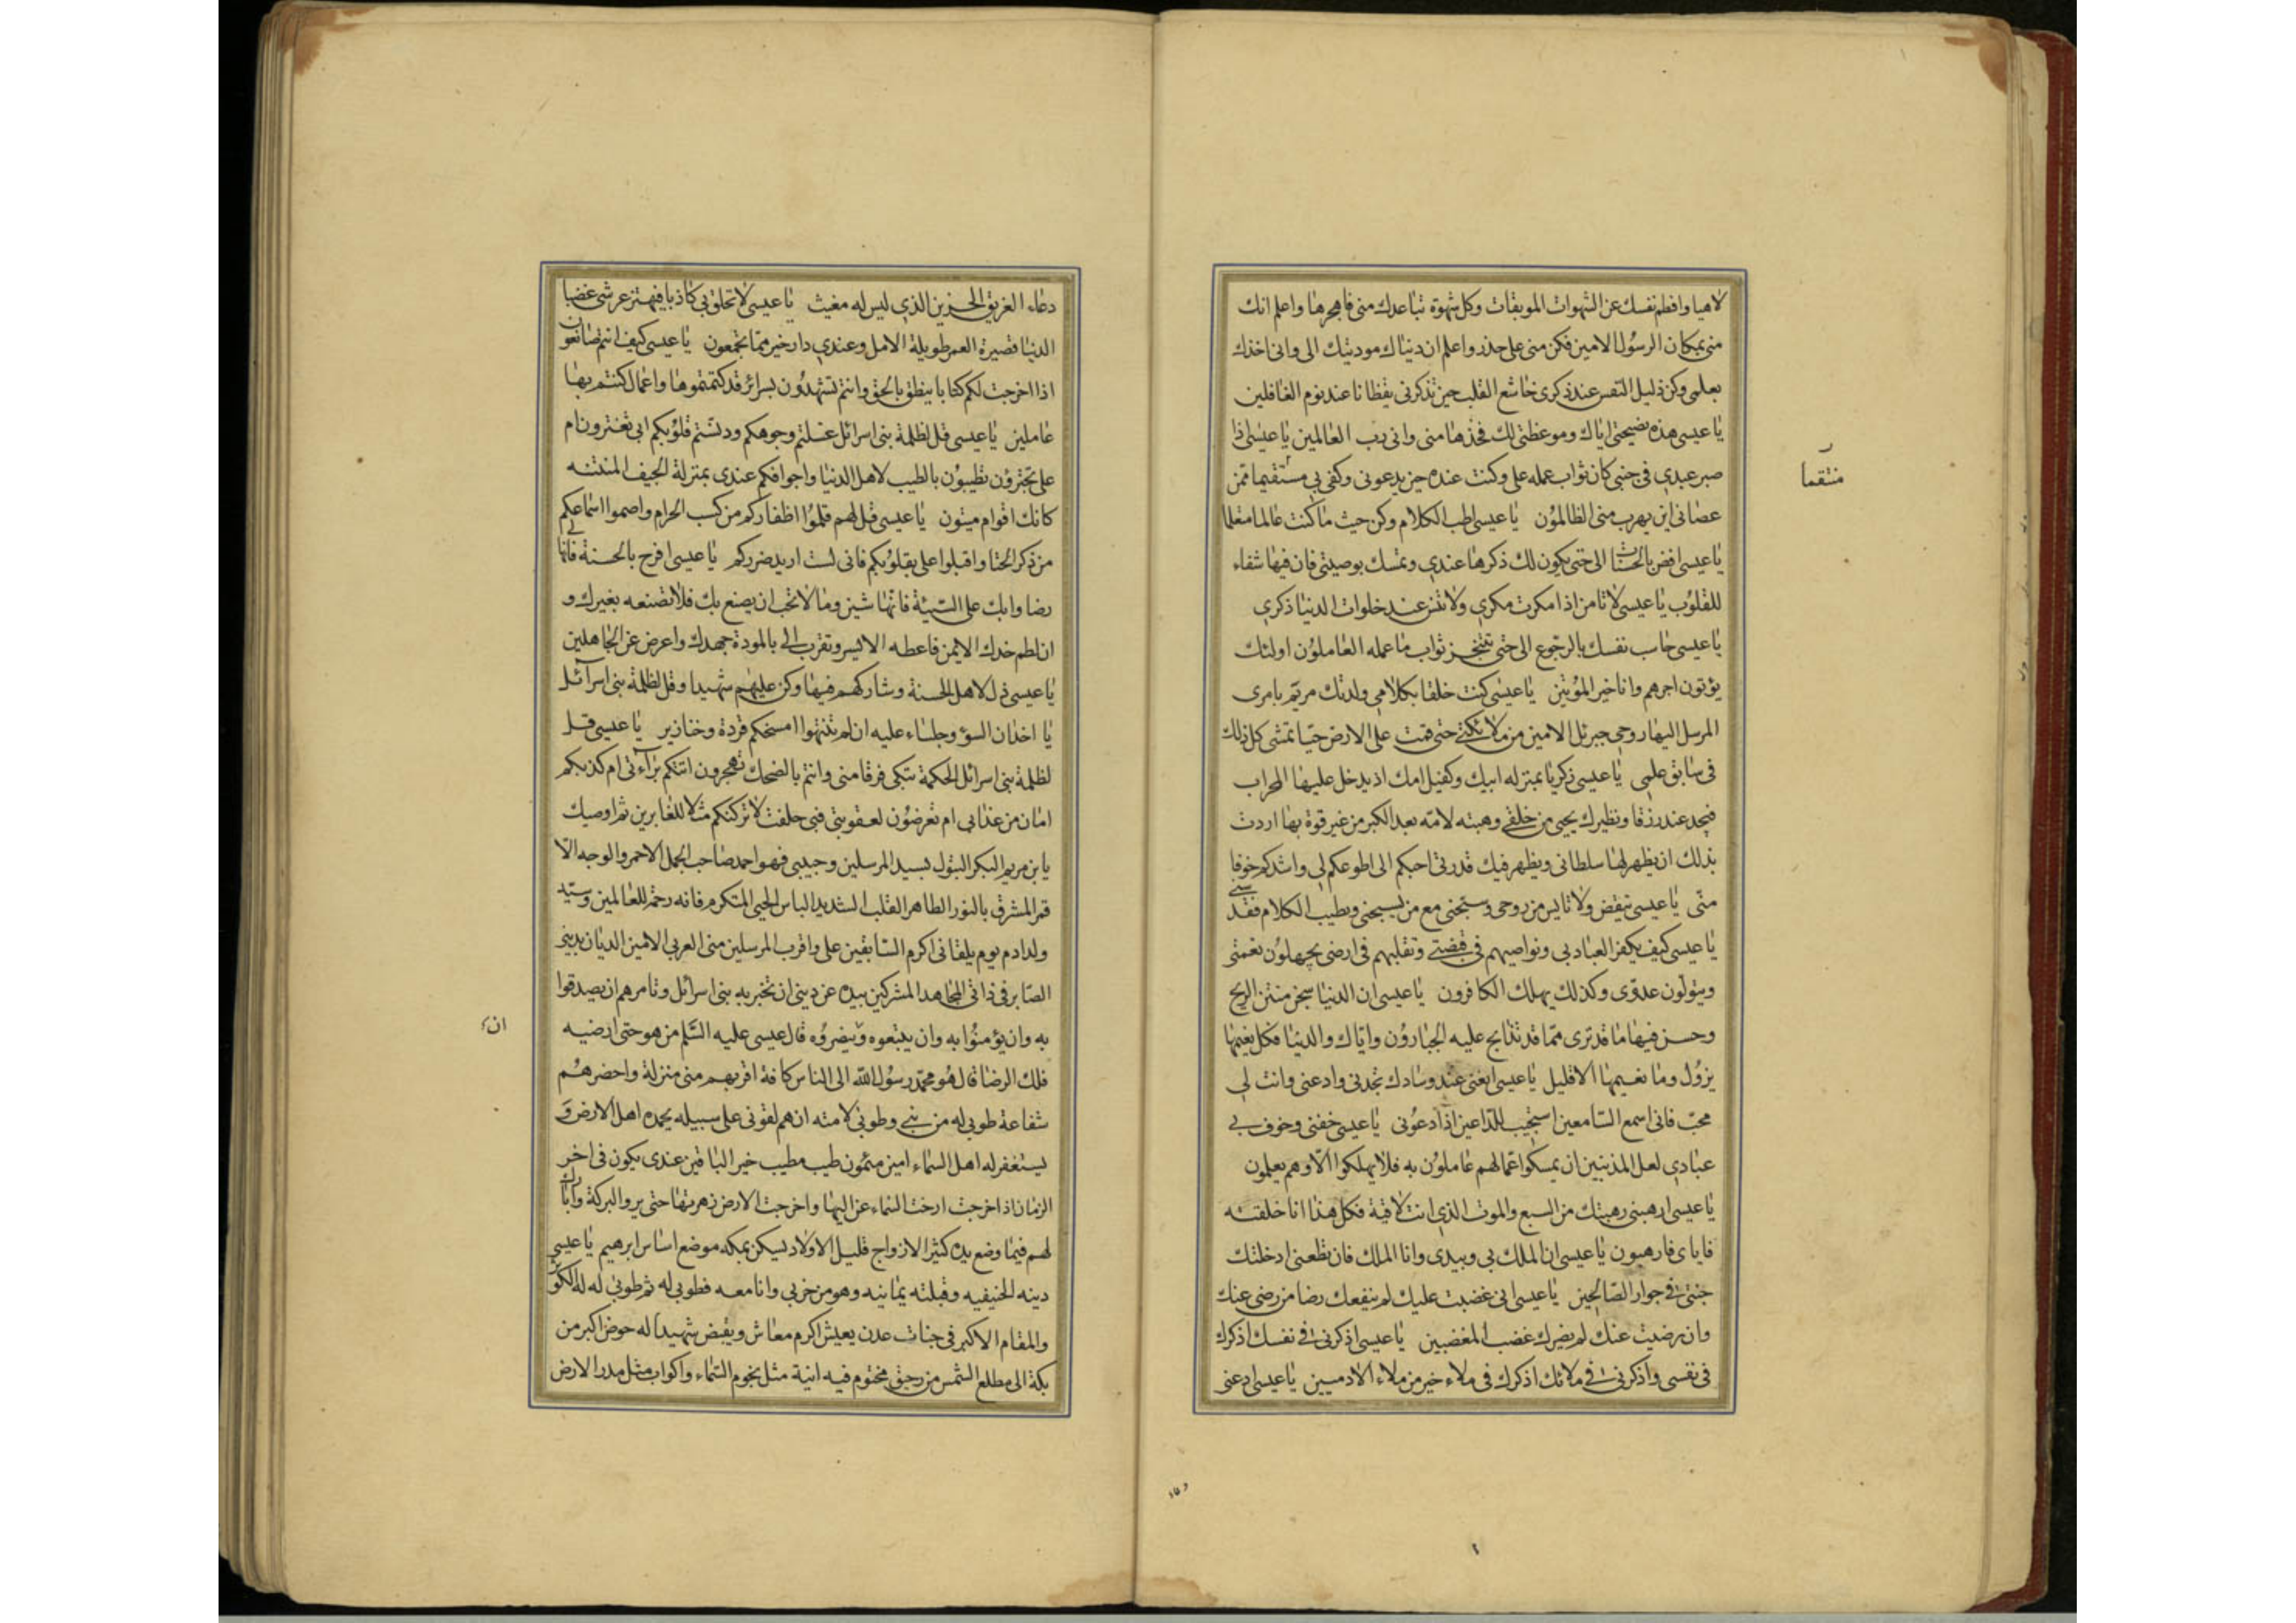 لاهيا وافطم نفسك عن الشهوات الموبقات وكل شهوة تباعدك مني فاهجرها واعلم انك
مني بمكان الرسول الامين فكن مني على حذر واعلم ان دنياك موديتك الى واني اخذك
بعلمي وكن ذليل النفس عند ذكري خاشع القلب حين تذكرني يقظانا عند نوم الغافلين
يا عيسى هذه نصيحتي اياك وموعظتي لك فخذها مني واني رب العالمين يا عيسى اذا
صبر عبدي في جنبي كان ثواب عمله علي وكنت عنده حين يدعوني وكفى بي مستقيما ممن
منتقما
عصاني اين يهرب مني الظالمون يا عيسى اطب الكلام وكن حيث ما كنت عالما متعلما
يا عيسى افض بالحسنات الى حتى يكون لك ذكرها عندي وتمسك بوصيتي فان فيها شفاء
للقلوب يا عيسى لا تامن اذا مكرت مكري ولا تنس عند خلوات الدنيا ذكري
يا عيسى حاسب نفسك بالرجوع الى حتى تتنجز ثواب ما عمله العاملون اولئك
يؤتون اجرهم وانا خير المؤتين يا عيسى كنت خلقا بكلامي ولدتك مريم بامري
المرسل اليها روحي جبرئل الامين من ملائكتي حتى قمت على الارض حيا تمشي كل ذلك
في سابق علمي يا عيسى زكريا بمنزله ابيك وكفيل امك اذ يدخل عليها المحراب
فيجد عند رزقا ونظيرك يحيى من خلقي وهبته لامه بعد الكبر من غير قوة بها اردت
بذلك ان يظهر لها سلطاني ويظهر فيك قدرتي احبكم الى اطوعكم لي واشدكم خوفا
منى يا عيسى تيقض ولا تايس من روحي وسبحني مع من يسبحني وبطيب الكلام فقدسني
يا عيسى كيف يكفر العباد بي ونواصيهم في قبضتي وتقلبهم في ارضي يجهلون نعمتي
ويتولون عدوي وكذلك يهلك الكافرون يا عيسى ان الدنيا سجن منتن الريح
وحسن فيها ما قد ترى مما قد تذابح عليه الجبارون واياك والدنيا فكل نعيمها
يزول وما نعيمها الا قليل يا عيسى ابغني عند وسادك تجدني وادعني وانت لي
محب فاني اسمع السامعين استجيب للداعين اذا دعوني يا عيسى خفني وخوف بي
عبادي لعل المذنبين ان يمسكوا عما لهم عاملون به فلا يهلكوا الا وهم يعلمون
يا عيسى ارهبني رهبتك من السبع والموت الذي انت لاقية فكل هذا انا خلقته
فاياي فارهبون يا عيسى ان الملك بي وبيدي وانا الملك فان تطعني ادخلتك
جنتي في جوار الصالحين يا عيسى اني غضبت عليك لم ينفعك رضا من رضي عنك
وان رضيت عنك لم يضرك غضب المغضبين يا عيسى اذكرني في نفسك اذكرك
في نفسي واذكرني في ملائك اذكرك في ملاء خير من ملاء الادميين يا عيسى ادعني
دعاء الغريق الحزين الذي ليس له مغيث يا عيسى لا تحلف بي كاذبا فيهتز عرشي غضبا
الدنيا قصيرة العمر طويلة الامل وعندي دار خير مما تجمعون يا عيسى كيف انتم صانعون
اذا اخرجت لكم كتابا ينطق بالحق وانتم تشهدون بسرائر قد كتمتموها واعمال كنتم بها
عاملين يا عيسى قل لظلمة بني اسرائل غسلتم وجوهكم ودنستم قلوبكم ابي تغترون ام
على تجترؤن تطيبون بالطيب لاهل الدنيا واجوافكم عندي بمنزلة الجيف المنتنه
كانك اقوام ميتون يا عيسى قل لهم قلموا اظفاركم من كسب الحرام واصموا اسماعكم
من ذكر الخنا واقبلوا على بقلوبكم فاني لست اريد ضرركم يا عيسى افرح بالحسنة فانها لي
رضا وابك على السيئة فانها شين وما لا تحب ان يصنع بك فلا تصنعه بغيرك و
ان لطم خدك الايمن فاعطه الايسر وتقرب الى بالمودة جهدك واعرض عن الجاهلين
يا عيسى ذل لاهل الحسنة وشاركهم فيها وكن عليهم شهيدا وقل لظلمة بني اسرآئل
يا اخدان السوء وجلساء عليه ان لم تنتهوا امسخكم قردة وخنازير يا عيسى قل
لظلمة بني اسرائل الحكمة تبكي فرقا مني وانتم بالضحك تهجرون اتتكم برآءتي ام لديكم
امان من عذابي ام تعرضون لعقوبتي فبي حلفت لا تركنكم مثلا للغابرين ثم اوصيك
يا بن مريم البكر البتول بسيد المرسلين وحبيبي فهو احمد صاحب الجمل الاحمر والوجه الا
قمر المشرق بالنور الطاهر القلب الشديد الباس الحيي المتكرم فانه رحمة للعالمين وسيد
ولد ادم يوم يلقاني اكرم السابقين على واقرب المرسلين مني العربي الامين الديان بديني
الصابر في ذاتي المجاهد المشركين بيده عن ديني ان تخبر به بني اسرائل وتامرهم ان يصدقوا
به وان يؤمنوا به وان يتبعوه وينصروه قال عيسى عليه السلم من هو حتى ارضيه
ان
فلك الرضا قال هو محمد رسول الله الى الناس كافة اقربهم مني منزلة واحضرهم
شفاعة طوبى له من نبي وطوبى لامته ان هم لقوني على سبيله يحمده اهل الارض و
يستغفر له اهل السماء امين ميمون طيب مطيب خير الباقين عندي يكون في اخر
الزمان اذا خرجت ارخت السماء عزاليها واخرجت الارض زهرتها حتى يروا البركة وابارك
لهم فيما وضع يده كثير الازواج قليل الاولاد يسكن بمكه موضع اساس ابرهيم يا عيسى
دينه الحنيفيه وقبلته يمانيه وهو من حزبي وانا معه فطوبى له ثم طوبى له له الكوثر
والمقام الاكبر في جنات عدن يعيش اكرم معاش ويقبض شهيدا له حوض اكبر من
بكة الى مطلع الشمس من رحيق مختوم فيه انية مثل نجوم السماء واكواب مثل مدر الارض